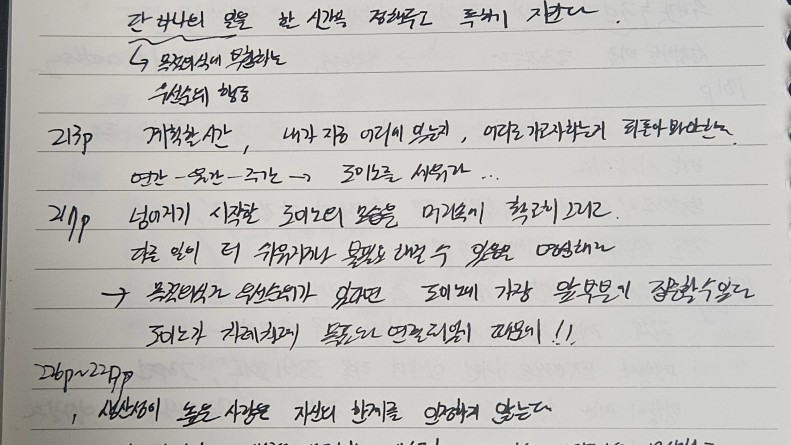 단 하나의 일을 한 시간씩 정해두고 특하기 지킨다.
↳ 목적의식에 부합하는
우선순위 행동
213p 계획할 시간, 내가 지금 어디에 있는지, 어디로 가고자하는지 되돌아 봐야한다.
연간 - 월간 - 주간 → 도미노를 세워라...
217p 넘어지기 시작한 도미노의 모습을 머릿속에 확고히 그리고.
다른 일이 더 쉬워지거나 불필요 해질 수 있음을 명심해라
→ 목적의식과 우선순위가 있다면 도미노의 가장 앞부분에 집중할 수 있다
도미노가 차례차례 목표와 연결되있기 때문에!!
226p~229p
, 생산성이 높은 사람은 자신의 한계를 인정하지 않는다